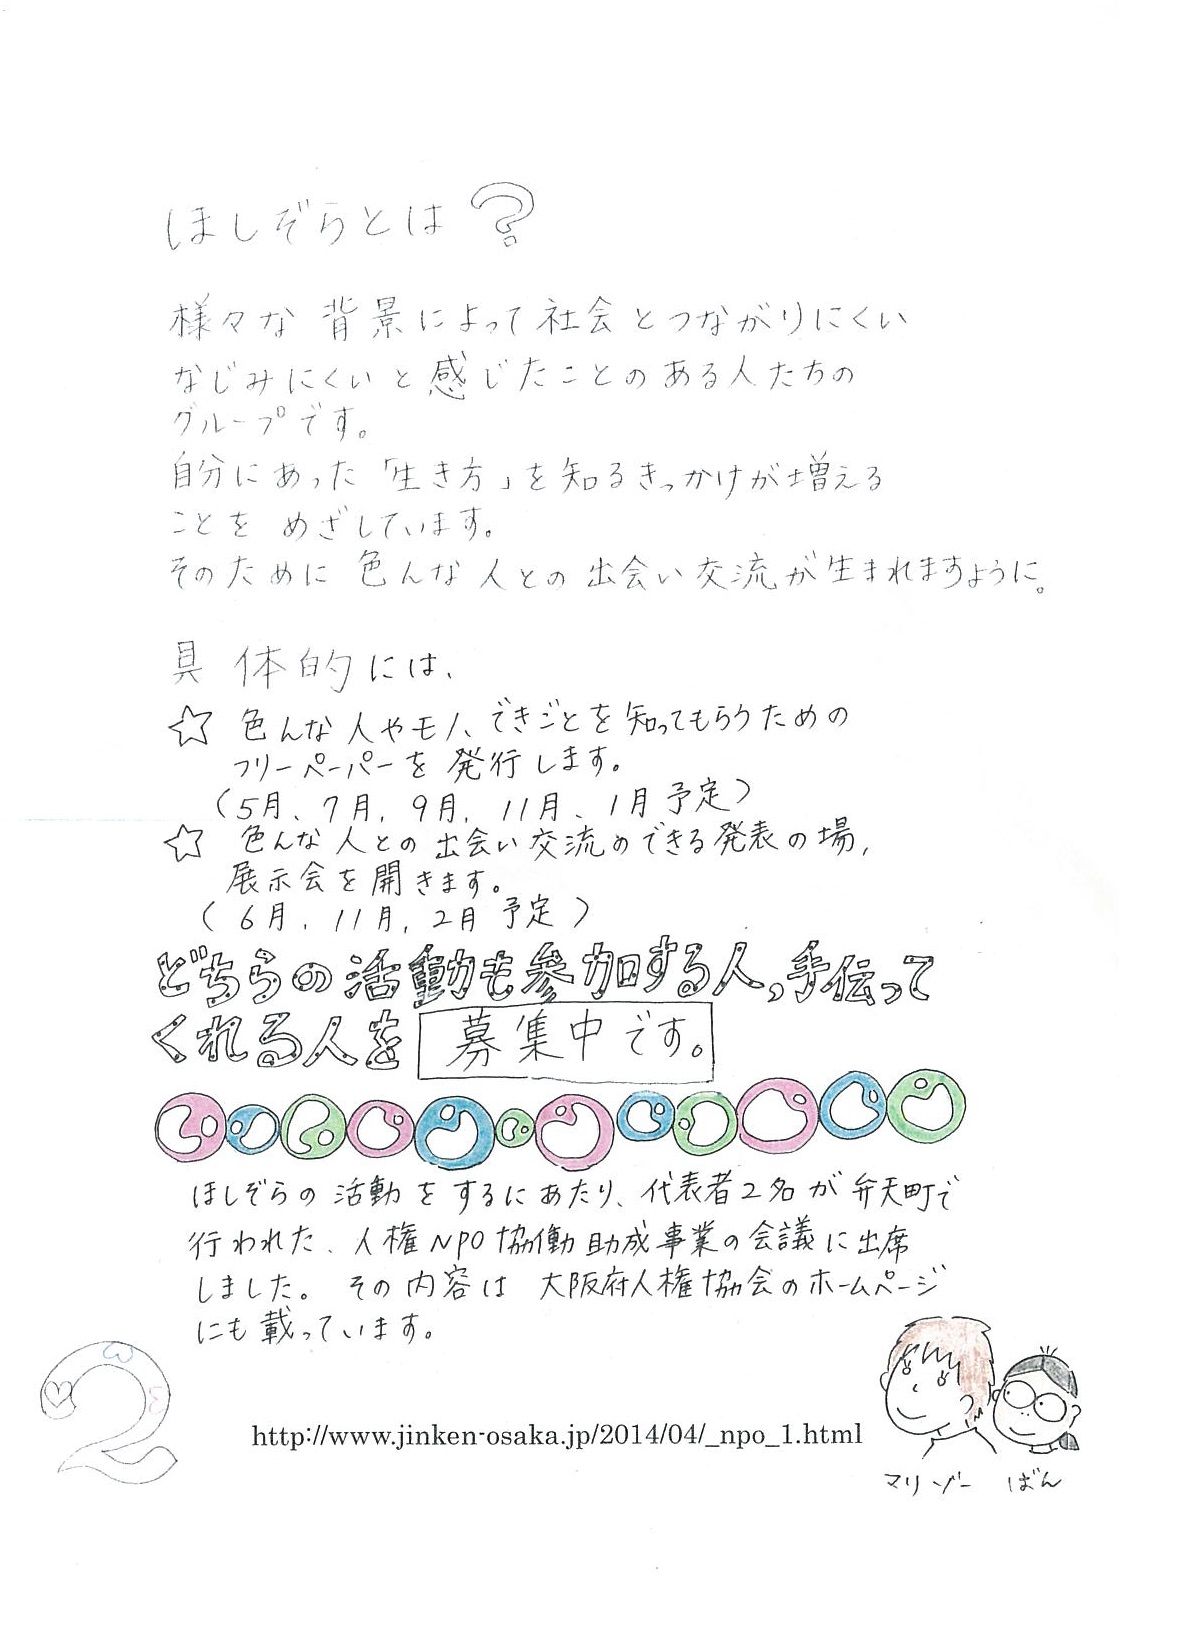 ほしぞらとは?
様々な背景によって社会とつながりにくい
なじみにくいと感じたことのある人たちの
グループです。
自分にあった「生き方」を知るきっかけが増える
ことをめざしています。
そのために色んな人との出会い交流が生まれますように。
具体的には、
☆ 色んな人やモノ、できごとを知ってもらうための
フリーペーパーを発行します。
(5月、7月、9月、11月、1月予定)
☆ 色んな人との出会い交流のできる発表の場、
展示会を開きます。
(6月、11月、2月予定)
どちらの活動も参加する人、手伝って
くれる人を募集中です。
ほしぞらの活動をするにあたり、代表者2名が弁天町で
行われた、人権NPO協働助成事業の会議に出席
しました。その内容は大阪府人権協会のホームページ
にも載っています。
http://www.jinken-osaka.jp/2014/04/_npo_1.html
マリゾー ばん
2